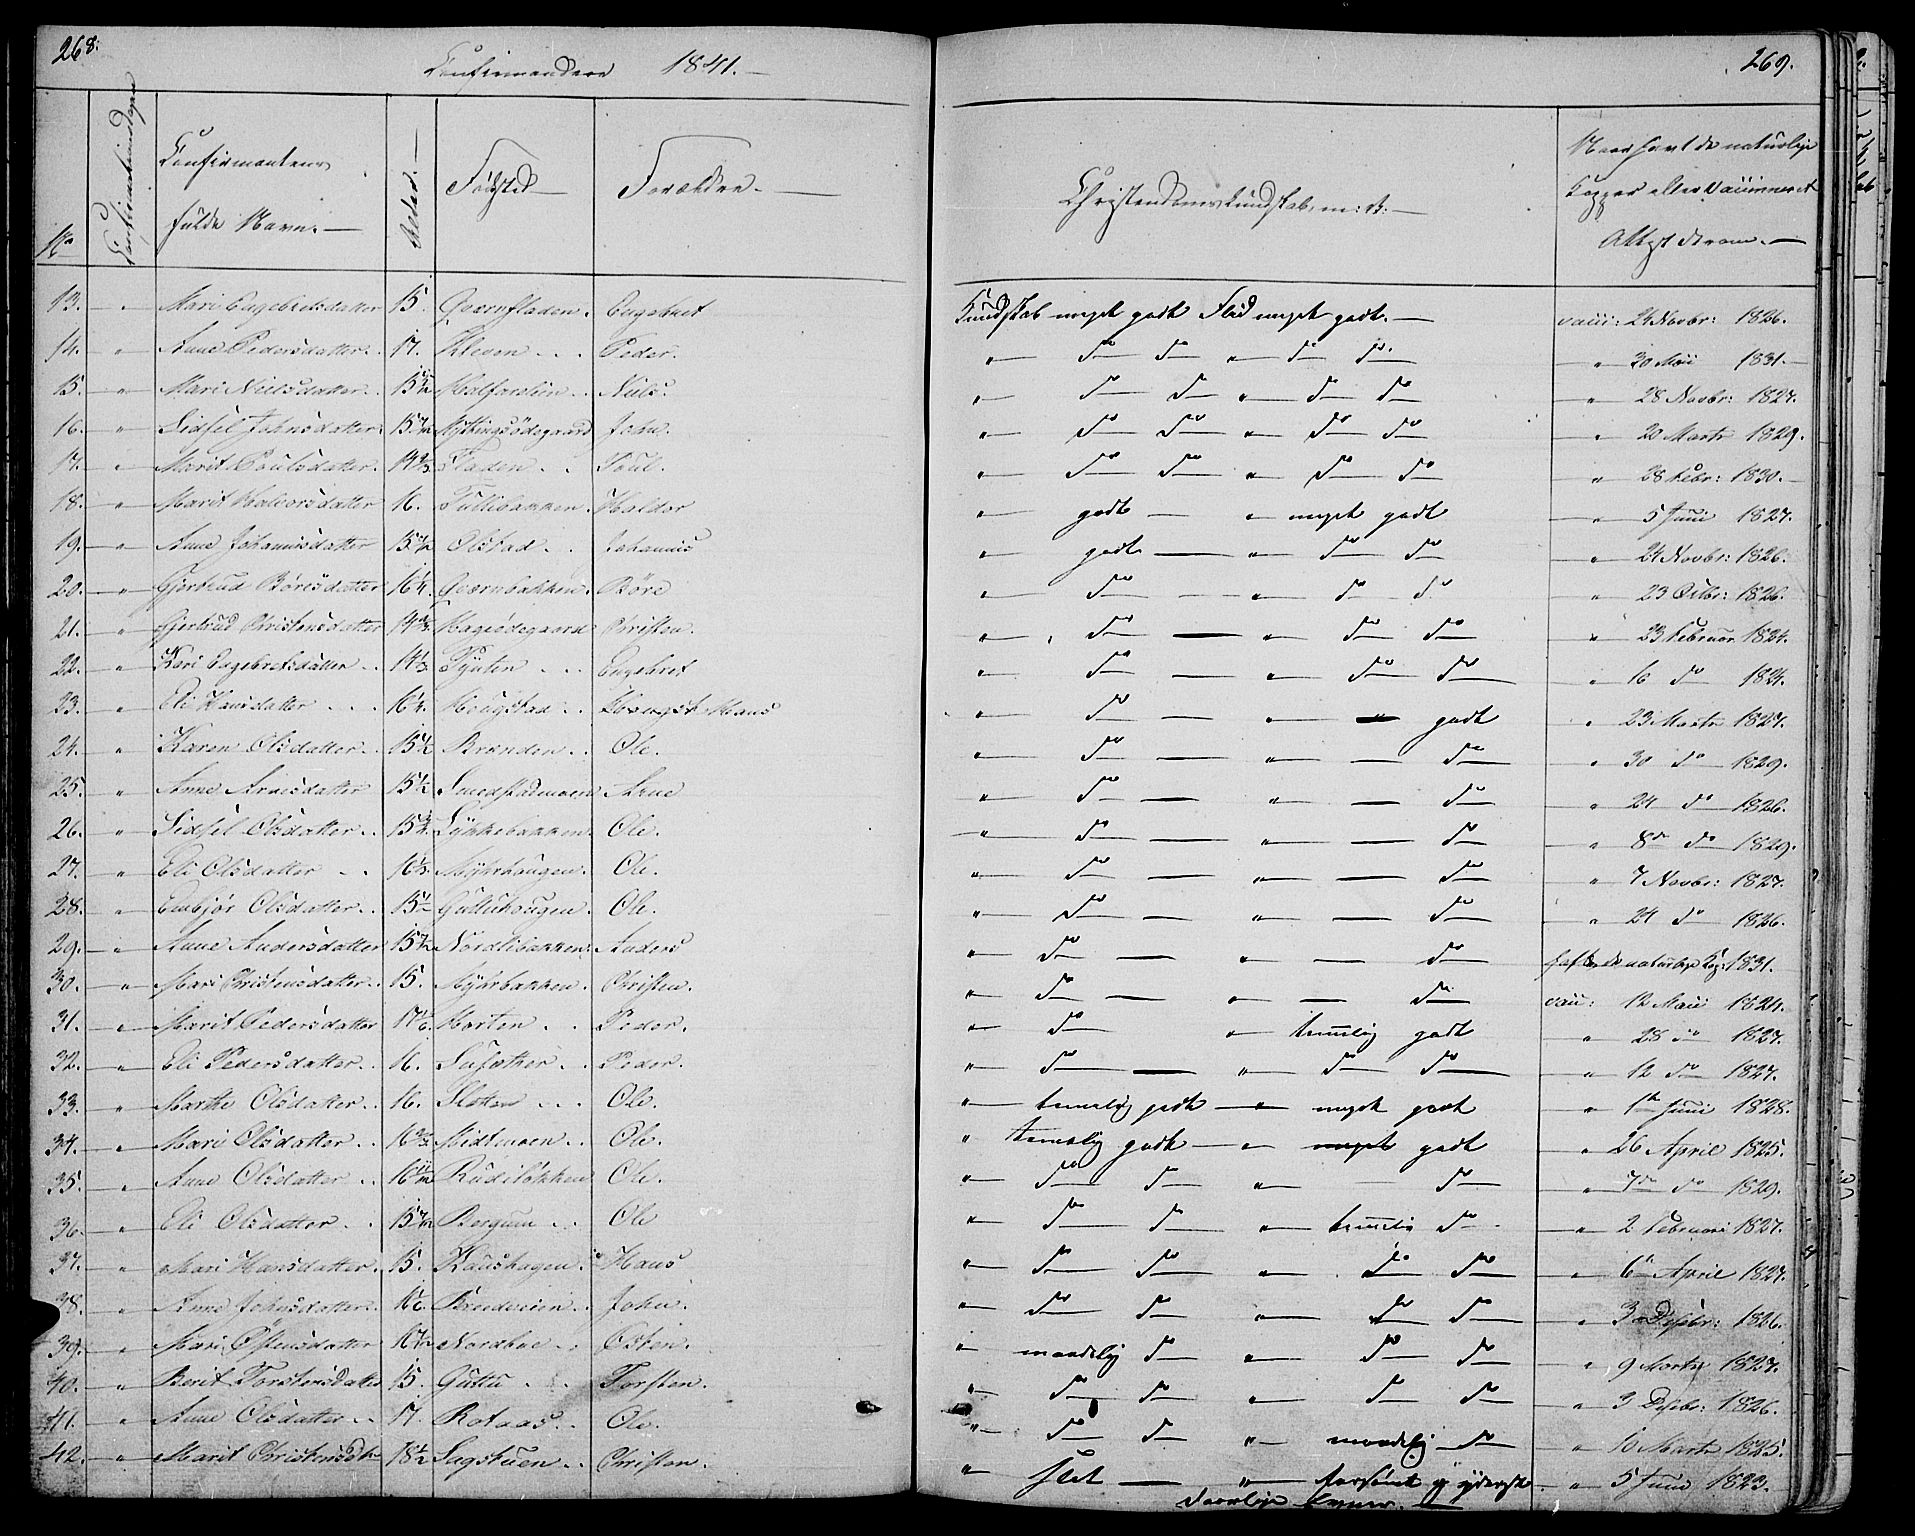 268.
Confirmandere 1841.
269.
No
Confirmationsdagen
Confirmantens
fulde Navn.
Alder.
Födsted
Forældre.
Christendomskundskab, m: v:
Naar havt de naturlige
Kopper eller Vaccineret
Attest derom.
13. " Mari Engebretsdatter 15. Qværnfladen. Engebret Kundskab meget godt Flid meget godt. vacci: 24 Novbr: 1826.
14. " Anne Pedersdatter. 17. Kleven Peder. " do do " do do. " 30 Maii 1831.
15. " Mari Nielsdatter. 15 Halfarstien. Niels. " do do " do do " 28 Novbr: 1827.
16. " Sidsel Johnsdatter. 15 Nyttingsödegaard John. " do do " do do " 20 Marts 1829.
17. " Marit Poulsdatter. 14 Fladen Poul. " do do " do do " 28 Febr: 1830.
18. " Marit Halvorsdatter 16. Tullibakken. Haldor " godt " meget godt " 5 Juni 1827.
19. " Anne Johannisdatter 15 Olstad Johannis " godt " do do " 24 Novbr: 1826.
20. " Gjertrud Böresdatter 16 1/4. Qværnbakken. Böre " do " do do " 23 Octbr: 1826.
21. " Gjertrud Christensdatter 14 Hageödegaard Christen. " do " do do " 23 Februar 1824.
22. " Kari Engebretsdatter 14 1/3 Pynten Engebret " do " do do " 16 do 1824.
23. " Eli Hansdatter 16 1/4. Hougstad Hans " do " " godt " 23 Marts 1827.
24. " Karen Olsdatter. 15 1/2 Brænden Ole. " do " do " 30 do 1829.
25. " Anne Arnesdatter 15 1/2 Smedstadmoen Arne " do " do " 24 do 1826.
26. " Sidsel Olsdatter. 15 Lykkebakken. Ole. " do " do " 8de do 1829.
27. " Eli Olsdatter 16 1/3 Myhrhaugen. Ole. " do " do " 7 Novbr: 1827.
28. " Embjör Olsdatter. 15 1/2 Guttuhougen. Ole. " do " do " 24 do 1826.
29. " Anne Andersdatter 15 Nordlibakken. Anders " do " do havt de naturlige Kop: 1831.
30. " Mari Christensdatter. 15. Myhrbakken. Christen. " do " do vacc: 12 Maii 1824.
31. " Marit Pedersdatter 17 1/6 Horten Peder. " do " temelig godt " 28 do 1827.
32. " Eli Pedersdatter 16. Peder. " do " do do " 12 do 1827.
33. " Marthe Olsdatter. 16. Sletten Ole. " temelig godt " meget godt " 1te Juni 1828.
34. " Mari Olsdatter. 16 2/3 Midtmoen Ole. " temelig godt " meget godt " 26 April 1825.
35. " Anne Olsdatter 16 Rudilökken Ole. " do do " do " 7de do 1829.
36. " Eli Olsdatter 15 Bergum Ole " do do " temelig do " 2 Februari 1827.
37. " Mari Hansdatter. 15. Kaushagen. Hans " do do " do do " 6te April 1827.
38. " Anne Johnsdatter 16 John. " do do " do do " 3 Desbr: 1826.
39. " Mari Östensdatter 16 Nordbue Östen. " maadelig do " do do " 9 Marts 1827.
40. " Berit Torstensdatter 15. Guttu Torsten. " do do " do do " 3 Desbr: 1826.
41. " Anne Olsdatter 17. Rotaas Ole. " do do " maadelig do " 10 Marts 1825.
42. " Marit Christensdtr 18 1/2 Sagstuen Christen. " slet " forsömt og yderst " 5 Juni 1823.
daarlige Evner.